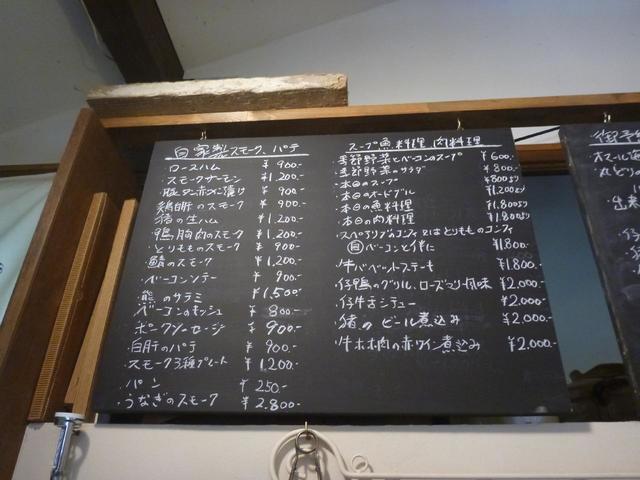 自家製スモーク、パテ
ロースハム ¥900.-
・スモークサーモン ¥1,200.-
・豚タン赤ワイン漬け ¥900.-
・鶏白肝のスモーク ¥900.-
・猪の生ハム ¥1,200.-
・鴨胸肉のスモーク ¥1,200.-
・とりもものスモーク ¥900.-
・鯖のスモーク ¥1,200.-
・ベーコンソテー ¥900.-
・熊のサラミ ¥1,500.-
・ベーコンのキッシュ ¥800.-
・ポークソーセージ ¥900.-
・白肝のパテ ¥900.-
・スモーク3種プレート ¥1,200.-
・パン ¥250.-
・うなぎのスモーク ¥2,800.-
スープ 魚料理 肉料理
・季節野菜とベーコンのスープ ¥600.-
・季節野菜のサラダ ¥800.-
・本日のスープ ¥800より
・本日のオードブル ¥1,200より
・本日の魚料理 ¥1,800より
・本日の肉料理 ¥1,800より
・スペアリブのコンフィ又はとりもものコンフィ
自ベーコンと伴に ¥1,800.-
・牛バベットステーキ ¥1,800.-
・仔鴨のグリル、ローズマリー風味 ¥2,000.-
・仔牛舌シチュー ¥2,000.-
・猪のビール煮込み ¥2,000.-
・牛ホホ肉の赤ワイン煮込み ¥2,000.-
御予